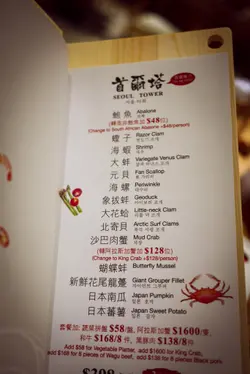 首爾塔
SEOUL TOWER
서울 타워
鮑魚 Abalone
(轉南非鮑魚加 $48位)
(Change to South African Abalone +$48/person)
蟶子 Razor Clam
海蝦 Shrimp
새우
大蚌 Variegate Venus Clam
元貝 Fan Scallop
海螺 Periwinkle
象拔蚌 Geoduck
大花蛤 Little-neck Clam
北寄貝 Arctic Surf Clams
沙巴肉蟹 Mud Crab
(轉阿拉斯蟹加 $128位)
(Change to King Crab +$128/person)
蝴蝶蚌 Butterfly Mussel
新鮮花尾龍躉 Giant Grouper Fillet
日本南瓜 Japan Pumpkin
일본 호박
日本蕃薯 Japan Sweet Potato
일본 고구마
套餐加: 蔬菜拼盤 $58/盤, 阿拉斯蟹 $1600/隻
和牛 $168/8件, 黑豚肉 $138/8件
Add $58 for Vegetable Platter, add $1600 for King Crab,
add $168 for 8 pieces of Wagyu beef, add $138 for 8 pieces Black pork